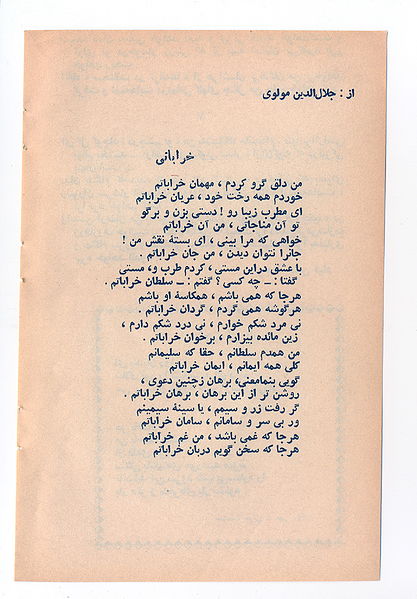 از : جلال‌الدین مولوی
خراباتی
من دلق گرو کردم ، مهمان خراباتم
خوردم همه رخت خود ، عریان خراباتم
ای مطرب زیبا رو ! دستی بزن و برگو
تو آن مناجاتی ، من آن خراباتم
خواهی که مرا بینی ، ای بستهٔ نقش من !
جانرا نتوان دیدن ، من جان خراباتم .
با عشق دراین مستی ، کردم طرب و، مستی
گفتا : ــ چه کسی ؟ گفتم : ــ سلطان خراباتم .
هرجا که همی باشم ، همکاسهٔ او باشم
هرگوشه همی گردم ، گردان خراباتم .
نی مرد شکم خوارم ، نی درد شکم دارم ،
زین مائده بیزارم ، برخوان خراباتم .
من همدم سلطانم ، حقا که سلیمانم
کلی همه ایمانم ، ایمان خراباتم
گویی بنمامعنی، برهان زچنین دعوی ،
روشن تر از این برهان ، برهان خراباتم .
گر رفت زر و سیمم ، با سینهٔ سیمینم
ور بی سر و سامانم ، سامان خراباتم
هرجا که غمی باشد ، من غم خراباتم
هرجا که سخن گویم دربان خراباتم